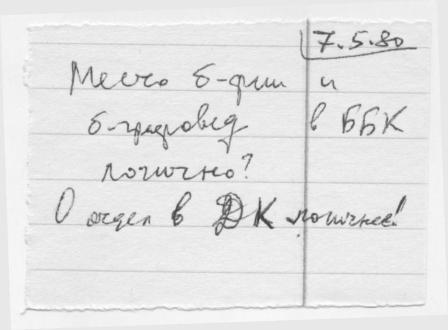 7.5.80
Место б-фии и
б-графовед в ББК
логично?
О отдел в ДК логичнее!